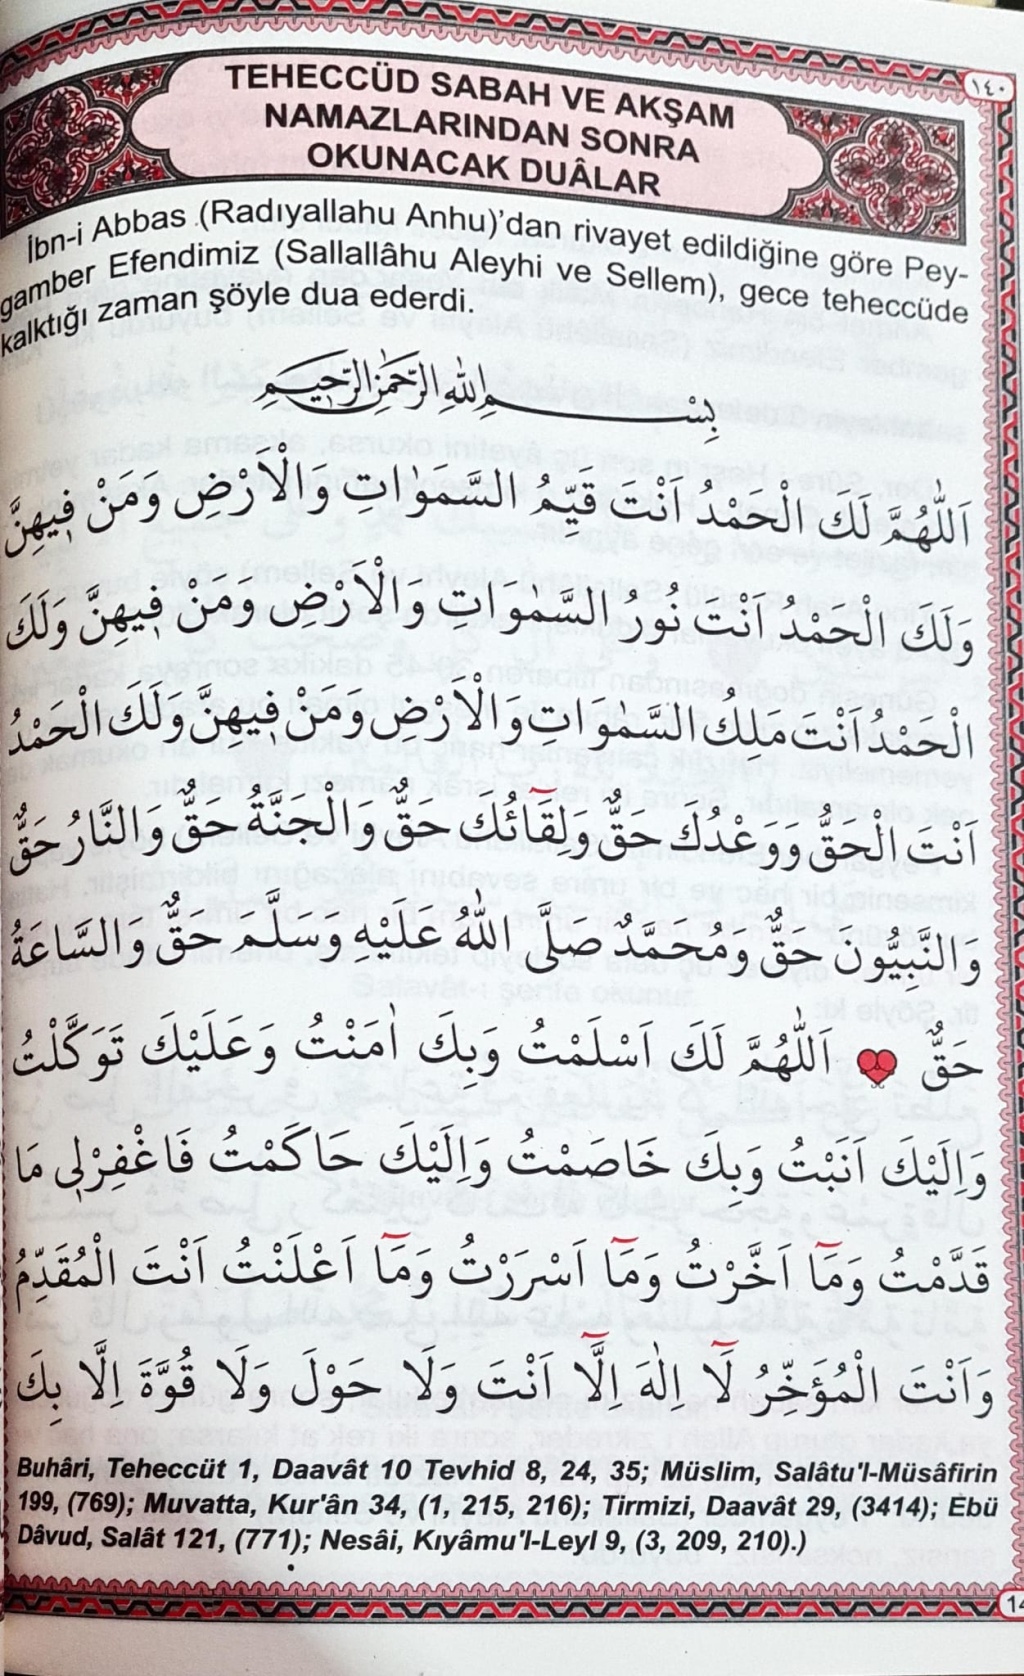 ١٤٠
TEHECCÜD SABAH VE AKŞAM
NAMAZLARINDAN SONRA
OKUNACAK DUÂLAR
İbn-i Abbas (Radıyallahu Anhu)'dan rivayet edildiğine göre Pey-
gamber Efendimiz (Sallallâhu Aleyhi ve Sellem), gece teheccüde
kalktığı zaman şöyle dua ederdi.
بِسْمِ اللهِ الرَّحْمٰنِ الرَّحِيمِ
اَللّٰهُمَّ لَكَ الْحَمْدُ اَنْتَ قَيِّمُ السَّمَوَاتِ وَالْاَرْضِ وَمَنْ فِيهِنَّ
وَلَكَ الْحَمْدُ اَنْتَ نُورُ السَّمٰوَاتِ وَالْاَرْضِ وَمَنْ فِيهِنَّ وَلَكَ
الْحَمْدُ اَنْتَ مَلِكُ السَّمٰوَاتِ وَالْاَرْضِ وَمَنْ فِيهِنَّ وَلَكَ الْحَمْدُ
اَنْتَ الْحَقُّ وَوَعْدُكَ حَقٌّ وَلِقَٓائُكَ حَقٌّ وَالْجَنَّةُ حَقٌّ وَالنَّارُ حَقٌّ
وَالنَّبِيُّونَ حَقٌّ وَمُحَمَّدٌ صَلَّى اللهُ عَلَيْهِ وَسَلَّمَ حَقٌّ وَالسَّاعَةُ
حَقٌّ اَللّٰهُمَّ لَكَ اَسْلَمْتُ وَبِكَ اٰمَنْتُ وَعَلَيْكَ تَوَكَّلْتُ
وَاِلَيْكَ اَنَبْتُ وَبِكَ خَاصَمْتُ وَاِلَيْكَ حَاكَمْتُ فَاغْفِرْلِي مَا
قَدَّمْتُ وَمَٓا اَخَّرْتُ وَمَٓا اَسْرَرْتُ وَمَٓا اَعْلَنْتُ اَنْتَ الْمُقَدِّمُ
وَاَنْتَ الْمُؤَخِّرُ لَٓا اِلٰهَ اِلَّٓا اَنْتَ وَلَا حَوْلَ وَلَا قُوَّةَ اِلَّا بِكَ
Buhâri, Teheccüt 1, Daavât 10 Tevhid 8, 24, 35; Müslim, Salâtu'l-Müsâfirin
199, (769); Muvatta, Kur'ân 34, (1, 215, 216); Tirmizi, Daavât 29, (3414); Ebü
Dâvud, Salât 121, (771); Nesâi, Kıyâmu'l-Leyl 9, (3, 209, 210).)